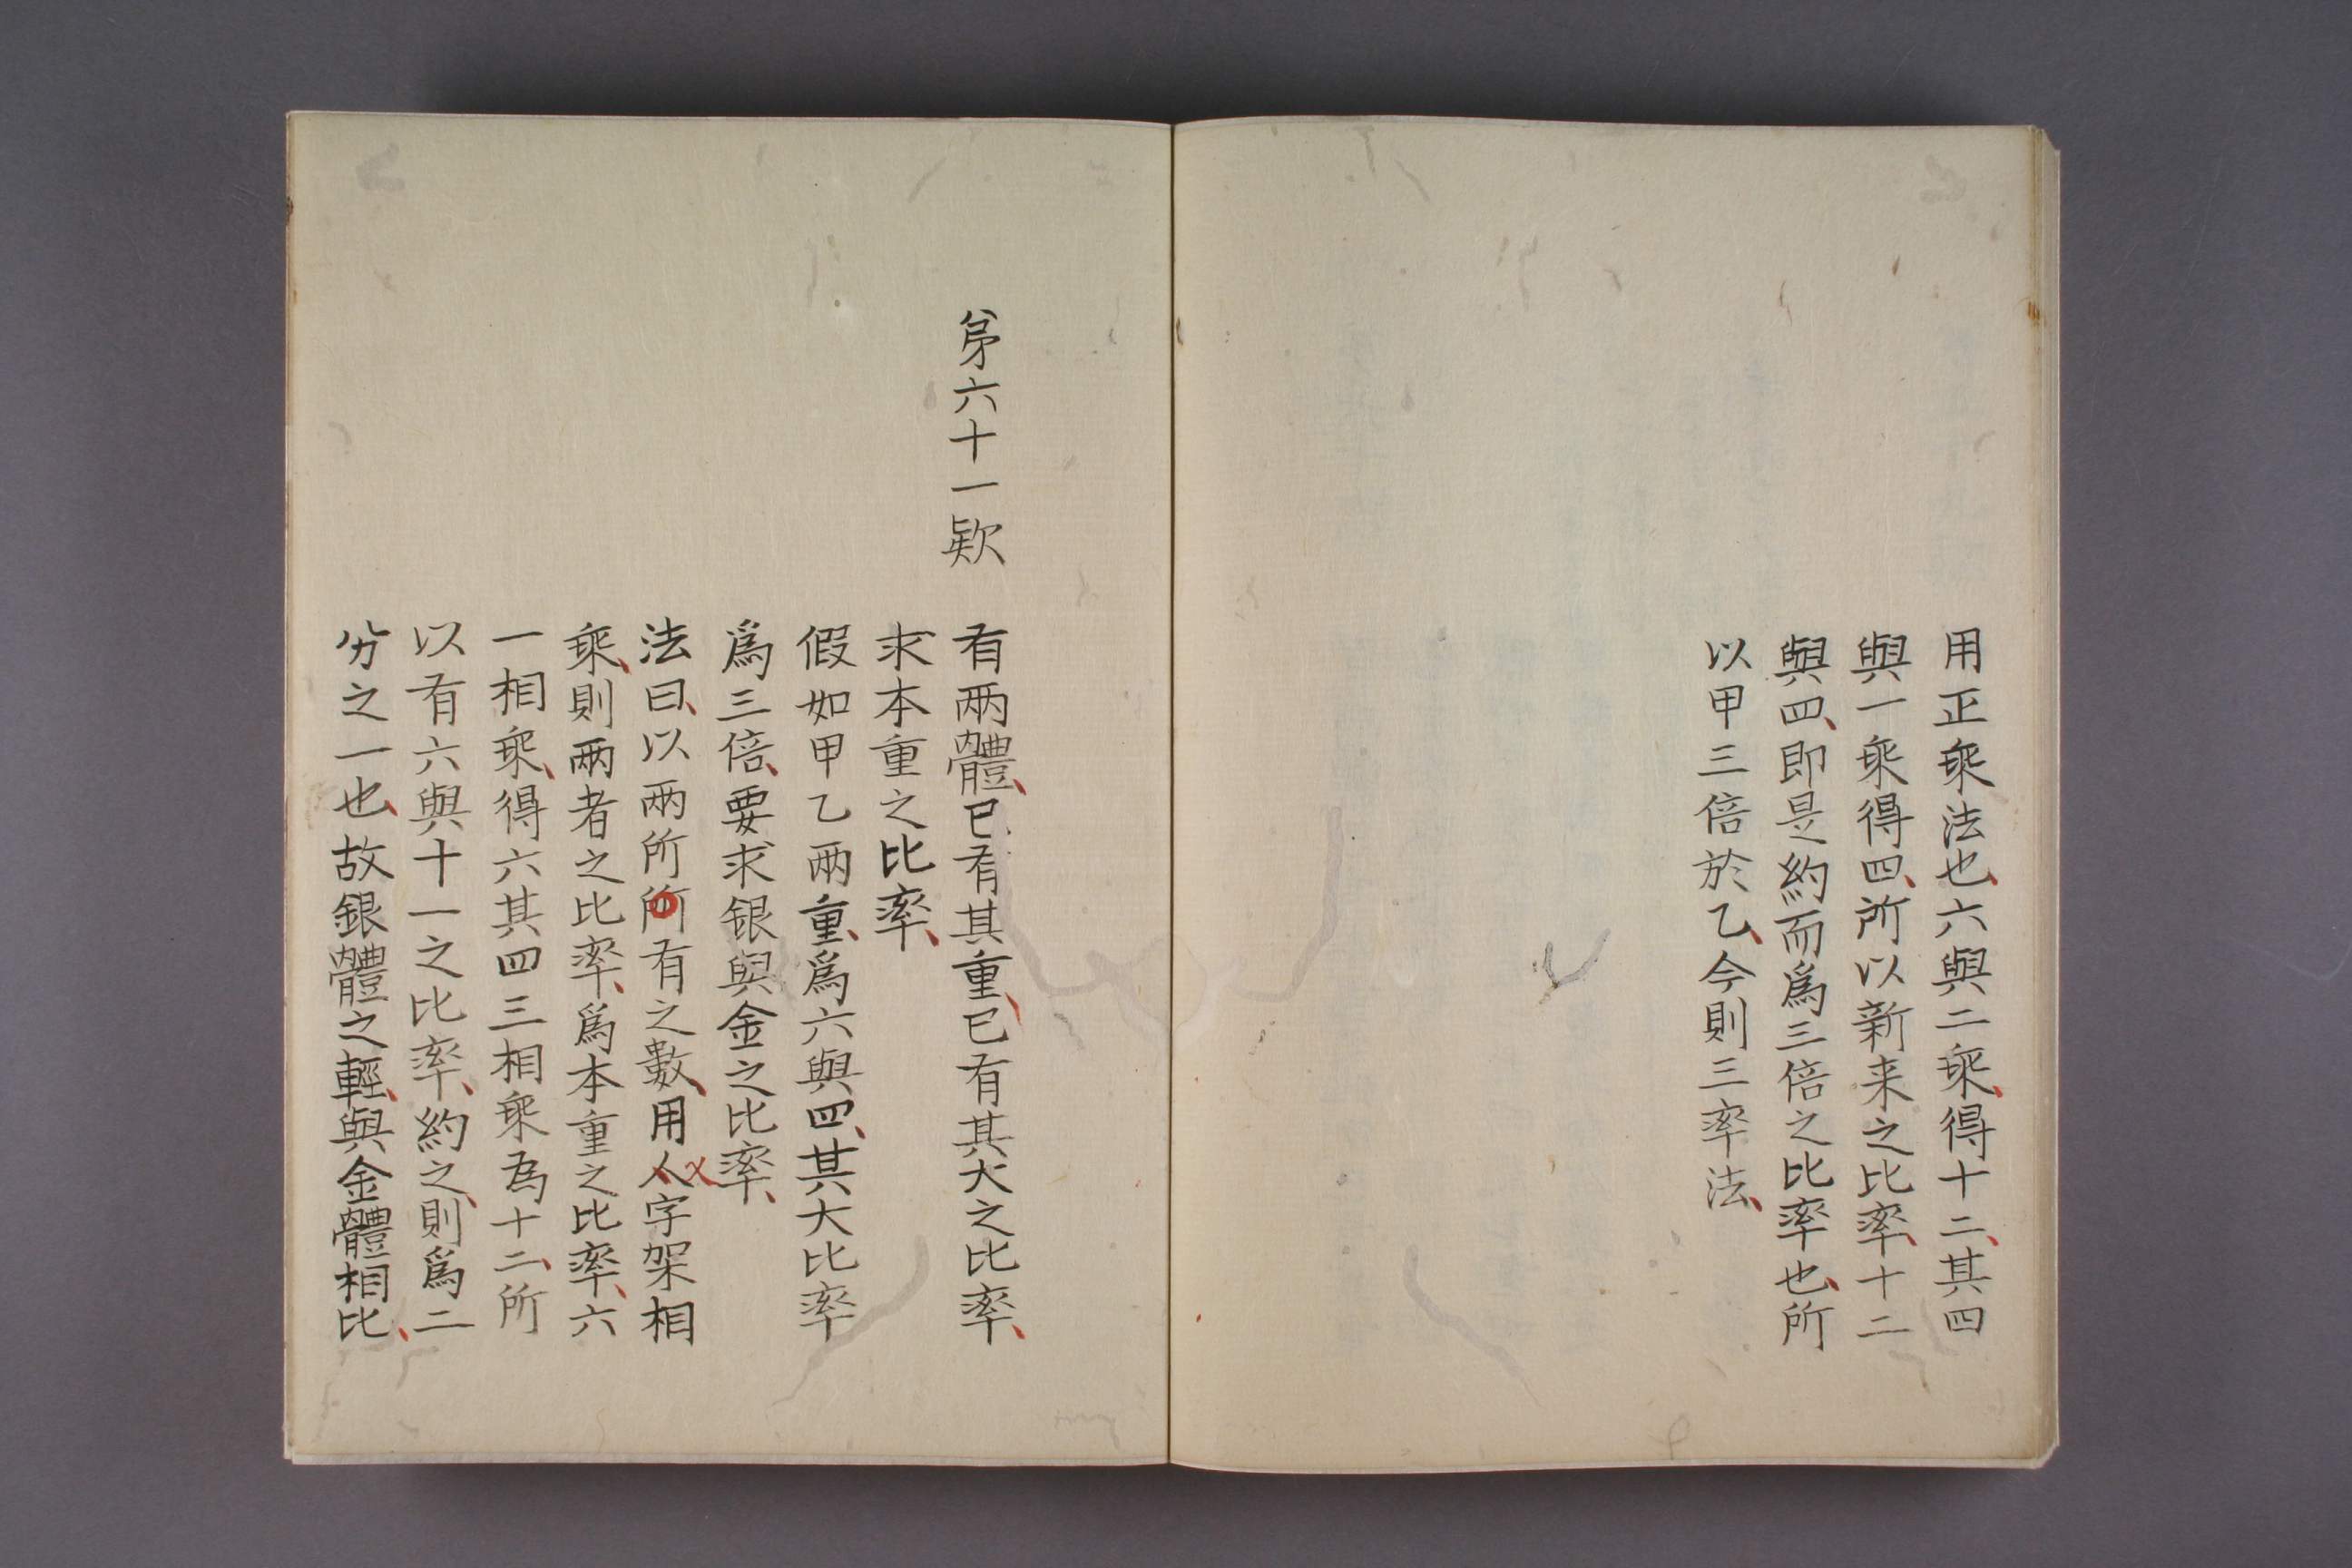 用正乘法也、六與二乘、得十二、其四
與一乘得四、所以新来之比率、十二
與四、即是約而爲三倍之比率也、所
以甲三倍於乙、今則三率法、
第六十一欵
有兩體、已有其重、已有其大之比率、
求本重之比率、
假如甲乙兩重、爲六與四、其大比率
爲三倍、要求銀與金之比率、
法曰、以兩所所有之數、用人字架相
乘、則兩者之比率、爲本重之比率、六
一相乘、得六其四三相乘為十二、所
以有六與十一之比率、約之、則爲二
分之一也、故銀體之輕、與金體相比、